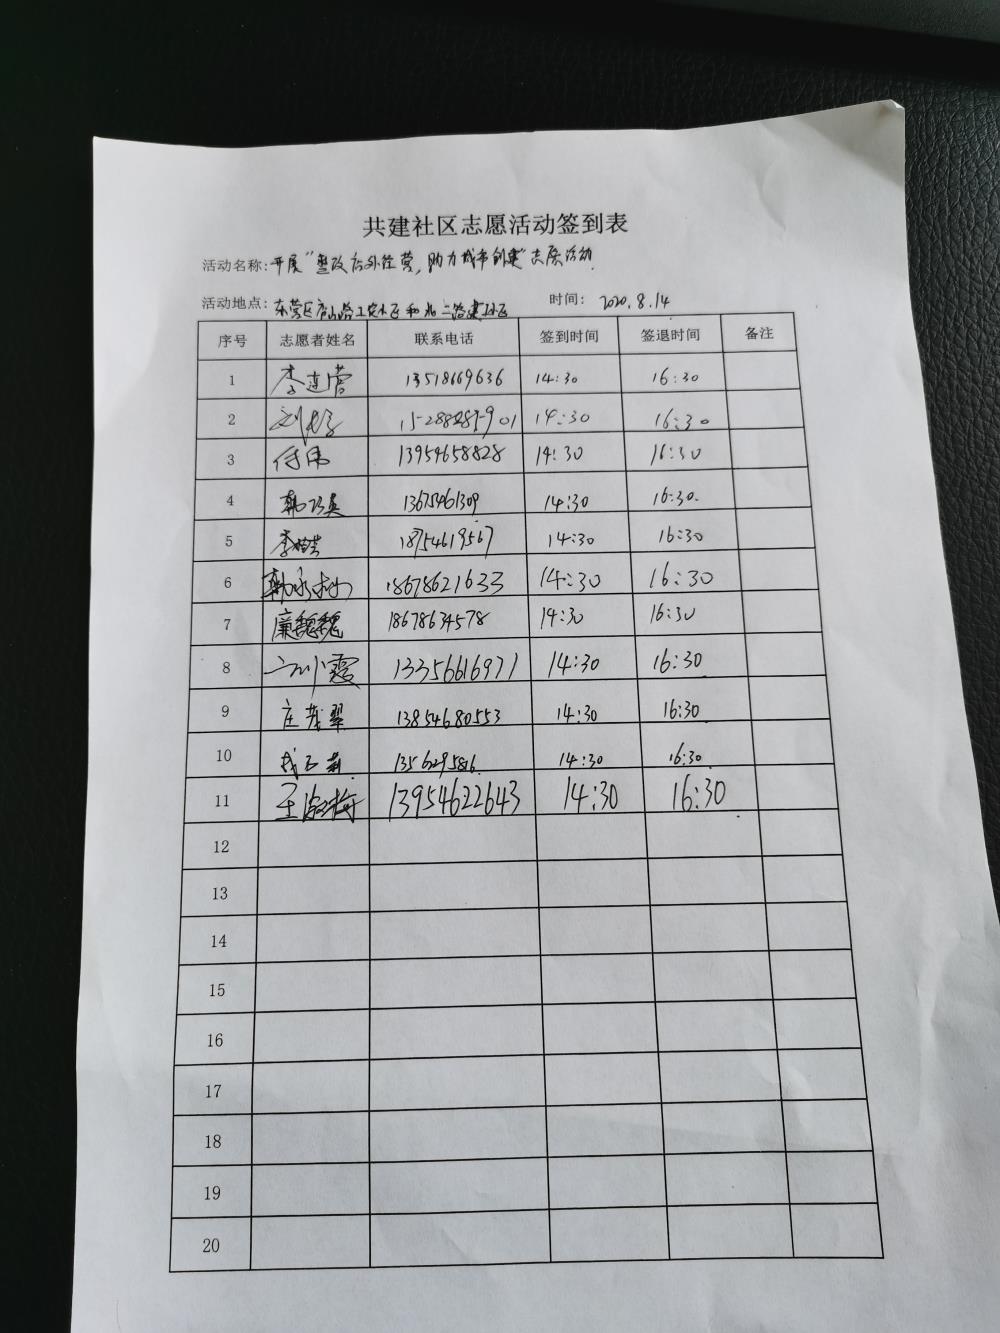 共建社区志愿活动签到表
活动名称:开展"整改店外经营,助力城市创建"志愿活动
活动地点:东营区 和北二路 时间: 2020.8.14
序号 志愿者姓名 联系电话 签到时间 签退时间 备注
1 李连营 13518669636 14:30 16:30
2 14:30 16:30
3 付伟 13954658828 14:30 16:30
4 韩巧英 13675461309 14:30 16:30.
5 18754619567 14:30 16:30
6 18678621633 14:30 16:30
7 廉魏魏 18678634578 14:30 16:30
8 霞 13356616971 14:30 16:30
9 庄茂翠 13854680553 14:30 16:30
10 14:30 16:30.
11 王淑梅 13954622643 14:30 16:30
12
13
14
15
16
17
18
19
20